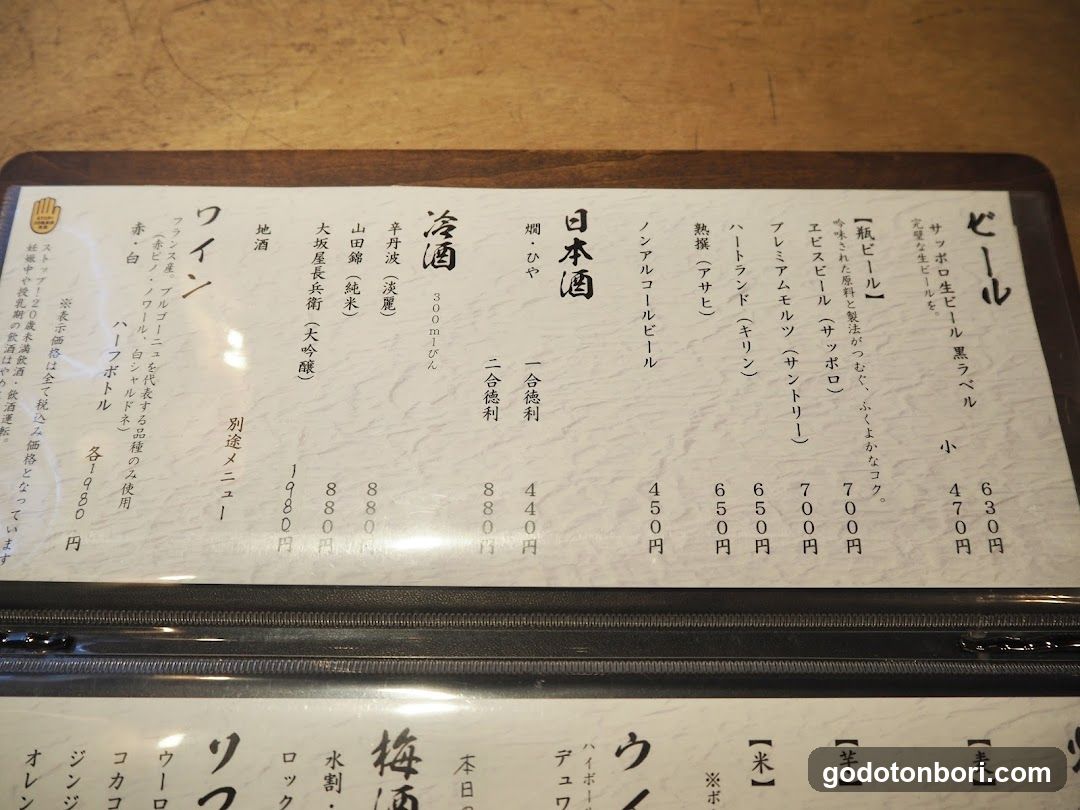 ビール
サッポロ生ビール 黒ラベル 630円
完璧な生ビールを。
小 470円
【瓶ビール】
吟味された原料と製法がつむぐ、ふくよかなコク。
ヱビスビール（サッポロ） 700円
プレミアムモルツ（サントリー） 700円
ハートランド（キリン） 650円
熟撰（アサヒ） 650円
ノンアルコールビール 450円
日本酒
燗・ひや 一合徳利 440円
二合徳利 880円
冷酒
300mlびん
辛丹波（淡麗） 880円
山田錦（純米） 880円
大坂屋長兵衛（大吟醸） 1980円
地酒 別途メニュー
ワイン
フランス産。ブルゴーニュを代表する品種のみ使用
（赤ピノ・ノワール、白シャルドネ）
赤・白 ハーフボトル 各1980円
※表示価格は全て税込み価格となっています
ストップ！20歳未満飲酒・飲酒運転。
妊娠中や授乳期の飲酒はやめ
【米】
※ボ
ウイ
ハイボー
デュワ
本日の
梅酒
水割・
ロック
ソフ
ウーロ
コカコ
ジンジ
オレン
godotonbori.com